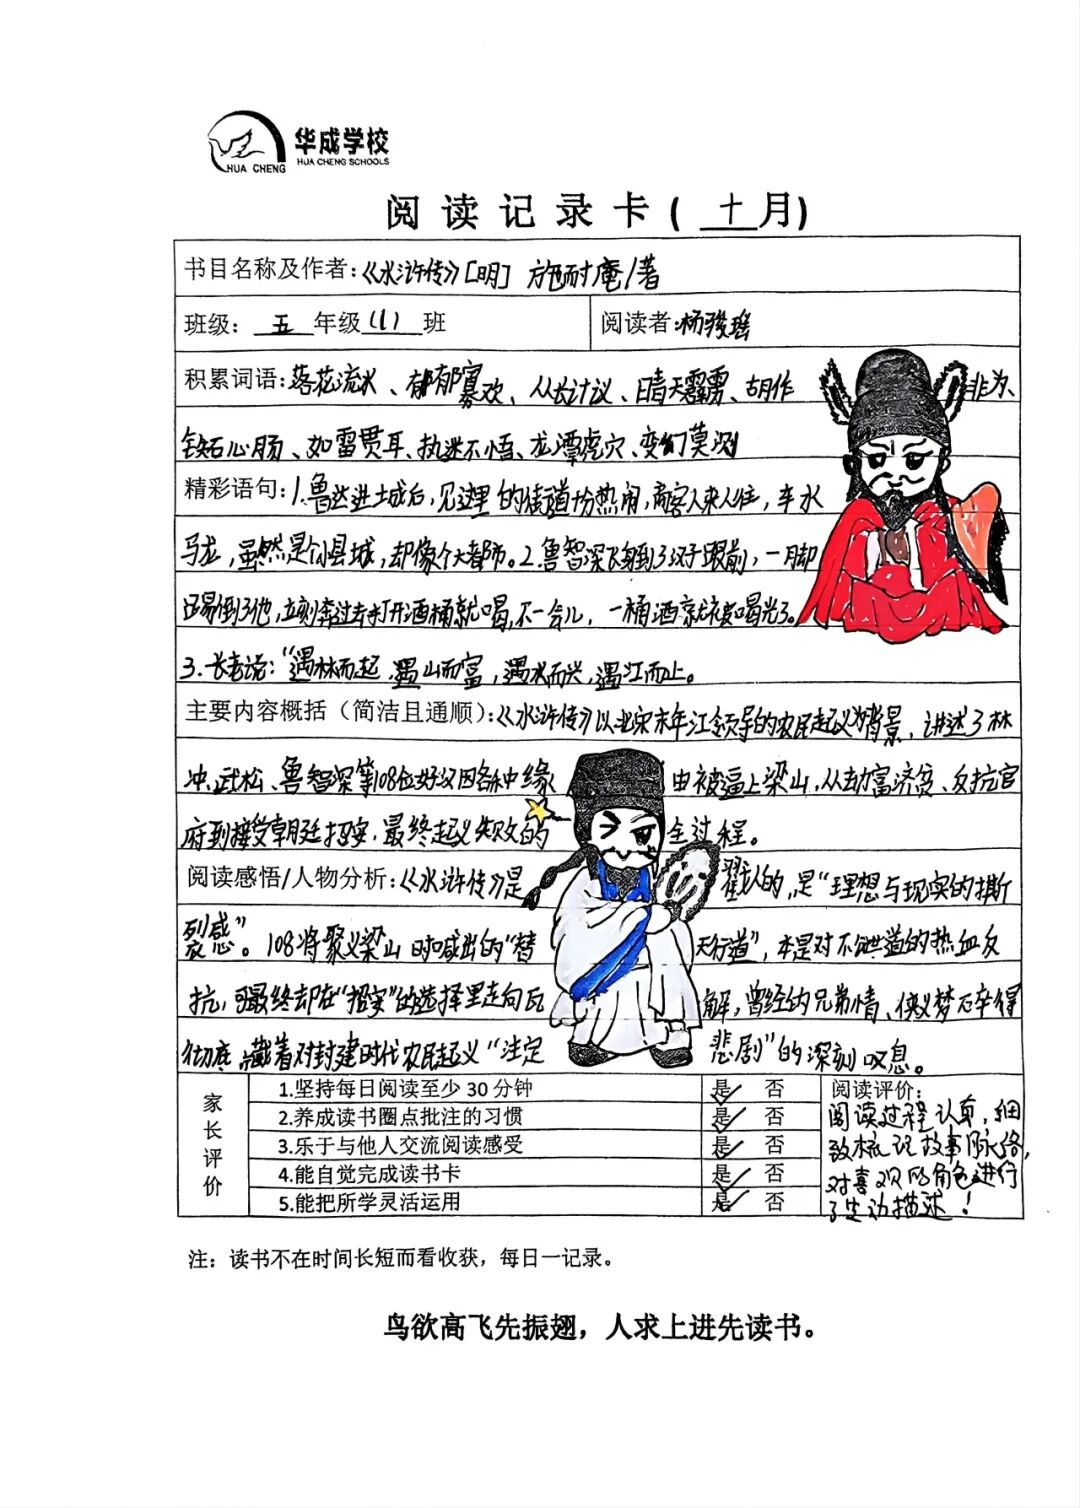 华成学校
HUA CHENG SCHOOLS
HUA CHENG
阅读记录卡( 十月)
书目名称及作者:《水浒传》[明] 施耐庵/著
班级: 五 年级(1)班 阅读者:杨骏瑶
积累词语:落花流水、郁郁寡欢、从长计议、晴天霹雳、胡作非为、
铁石心肠、如雷贯耳、执迷不悟、龙潭虎穴、变幻莫测
精彩语句:1.鲁达进土城后,见这里的街道份热闹,商客人来人往,车水
马龙,虽然是个县城,却像个大都市。2.鲁智深飞身到了汉子跟前,一脚
踢倒了他,立刻奔过去打开酒桶就喝,不一会儿,一桶酒就被喝光了。
3.长老说:“遇林而起,遇山而富,遇水而兴,遇江而止。
主要内容概括(简洁且通顺):《水浒传》以北宋末年江领导的农民起义为背景,讲述了林
冲、武松、鲁智深等108位好汉因各种缘由被逼上梁山,从劫富济贫、反抗官
府到接受朝廷招安,最终起义失败的全过程。
阅读感悟/人物分析:《水浒传》是戳人的,是“理想与现实的撕
裂感”。108将聚义梁山时喊出的“替天行道”,本是对不公世道的热血反
抗,最终却在“招安”的选择里走向瓦解,曾经的兄弟情、侠义梦碎得
彻底,藏着对封建时代农民起义“注定悲剧”的深刻叹息。
家长评价
1.坚持每日阅读至少30分钟 是✓ 否
2.养成读书圈点批注的习惯 是✓ 否
3.乐于与他人交流阅读感受 是✓ 否
4.能自觉完成读书卡 是✓ 否
5.能把所学灵活运用 是✓ 否
阅读评价:
阅读过程认真,细
致梳理故事脉络,
对喜欢的角色进行
了生动描述!
注:读书不在时间长短而看收获,每日一记录。
鸟欲高飞先振翅,人求上进先读书。